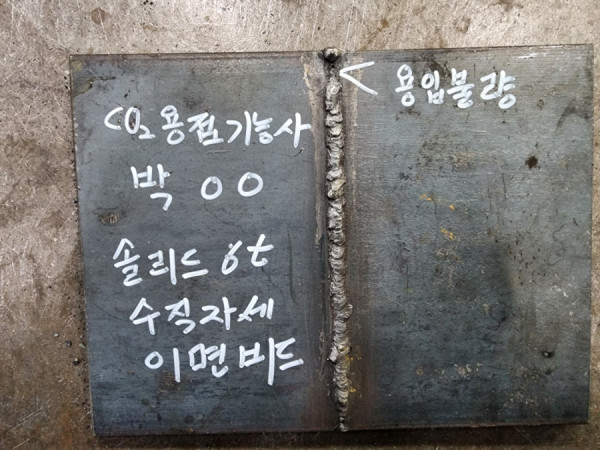 CO2용접기능사
박 OO
솔리드 6t
수직자세
이면비드
< 용입불량